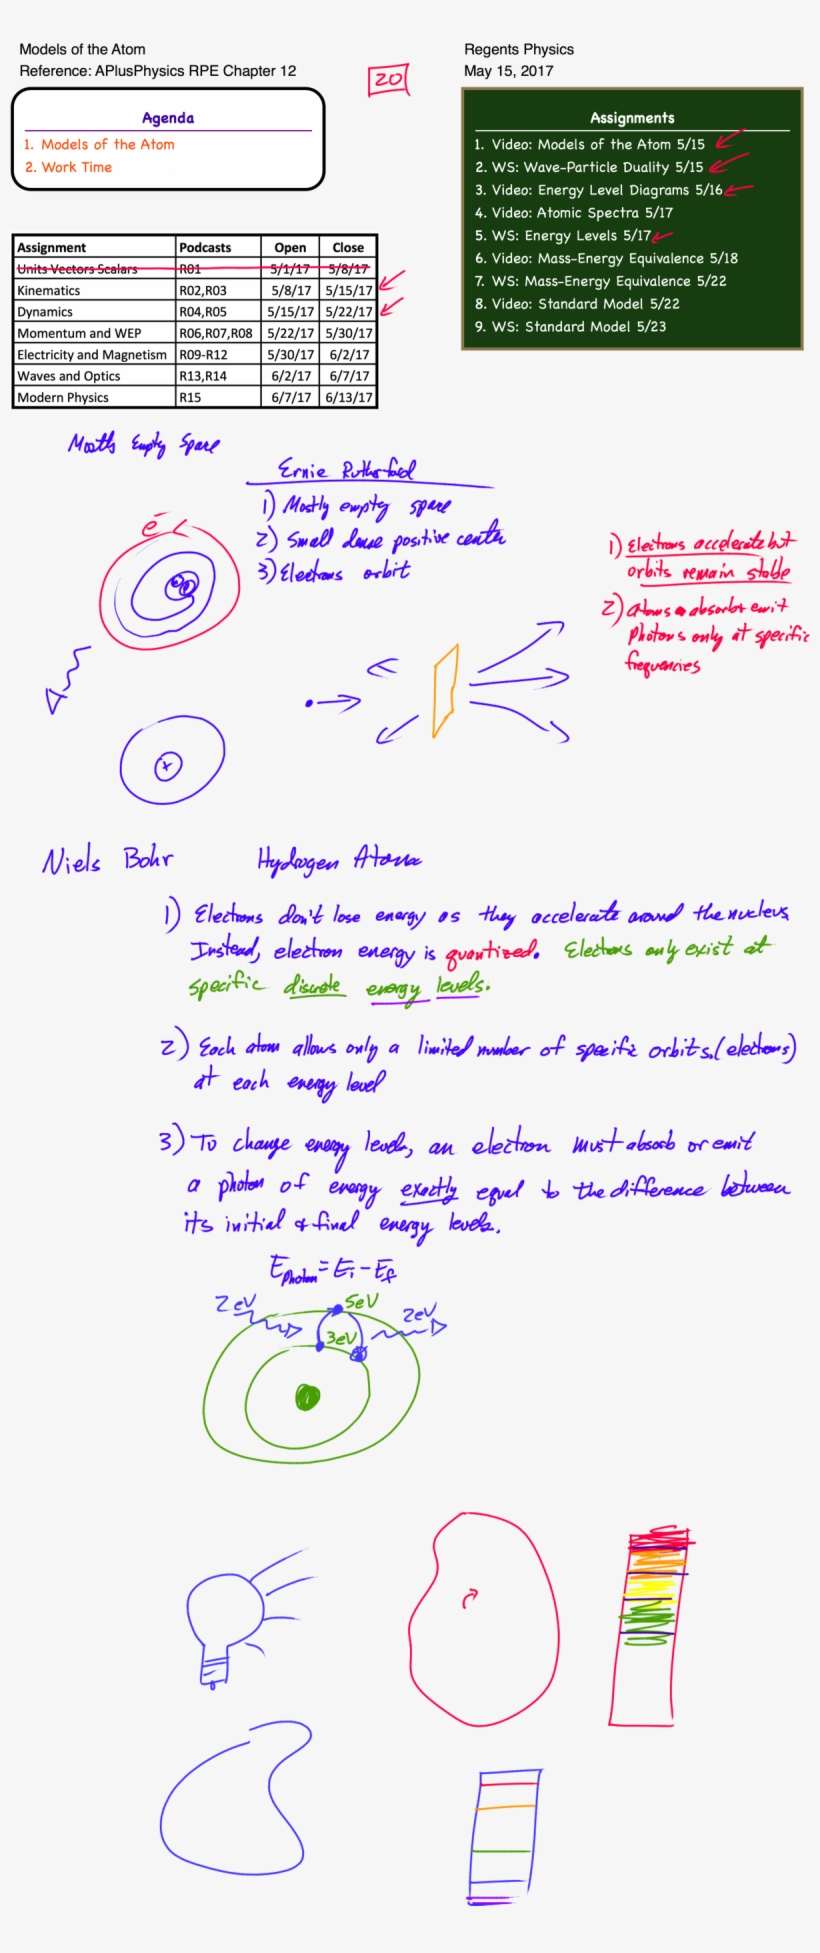 Models of the Atom
Reference: APlusPhysics RPE Chapter 12
20
Regents Physics
May 15, 2017
Agenda
1. Models of the Atom
2. Work Time
Assignments
1. Video: Models of the Atom 5/15
2. WS: Wave-Particle Duality 5/15
3. Video: Energy Level Diagrams 5/16
4. Video: Atomic Spectra 5/17
5. WS: Energy Levels 5/17
6. Video: Mass-Energy Equivalence 5/18
7. WS: Mass-Energy Equivalence 5/22
8. Video: Standard Model 5/22
9. WS: Standard Model 5/23
Assignment Podcasts Open Close
Units Vectors Scalars R01 5/1/17 5/8/17
Kinematics R02,R03 5/8/17 5/15/17
Dynamics R04,R05 5/15/17 5/22/17
Momentum and WEP R06,R07,R08 5/22/17 5/30/17
Electricity and Magnetism R09-R12 5/30/17 6/2/17
Waves and Optics R13,R14 6/2/17 6/7/17
Modern Physics R15 6/7/17 6/13/17
Empty Space
Ernie Rutherford
1) Mostly empty space
2) Small dense positive center
3) Electrons orbit
e-
1) Electrons accelerate but
orbits remain stable
2) Atoms absorb emit
Photons only at specific
frequencies
+
Niels Bohr Hydrogen Atom
1) Electrons don't lose energy as they accelerate around the nucleus
Instead, electron energy is quantized. Electrons only exist at
specific discrete energy levels.
2) Each atom allows only a limited number of specific orbits. (electrons)
at each energy level
3) To change energy levels, an electron must absorb or emit
a photon of energy exactly equal to the difference between
its initial & final energy levels.
Ephoton = Ei - Ef
2eV 5eV 2eV
3eV